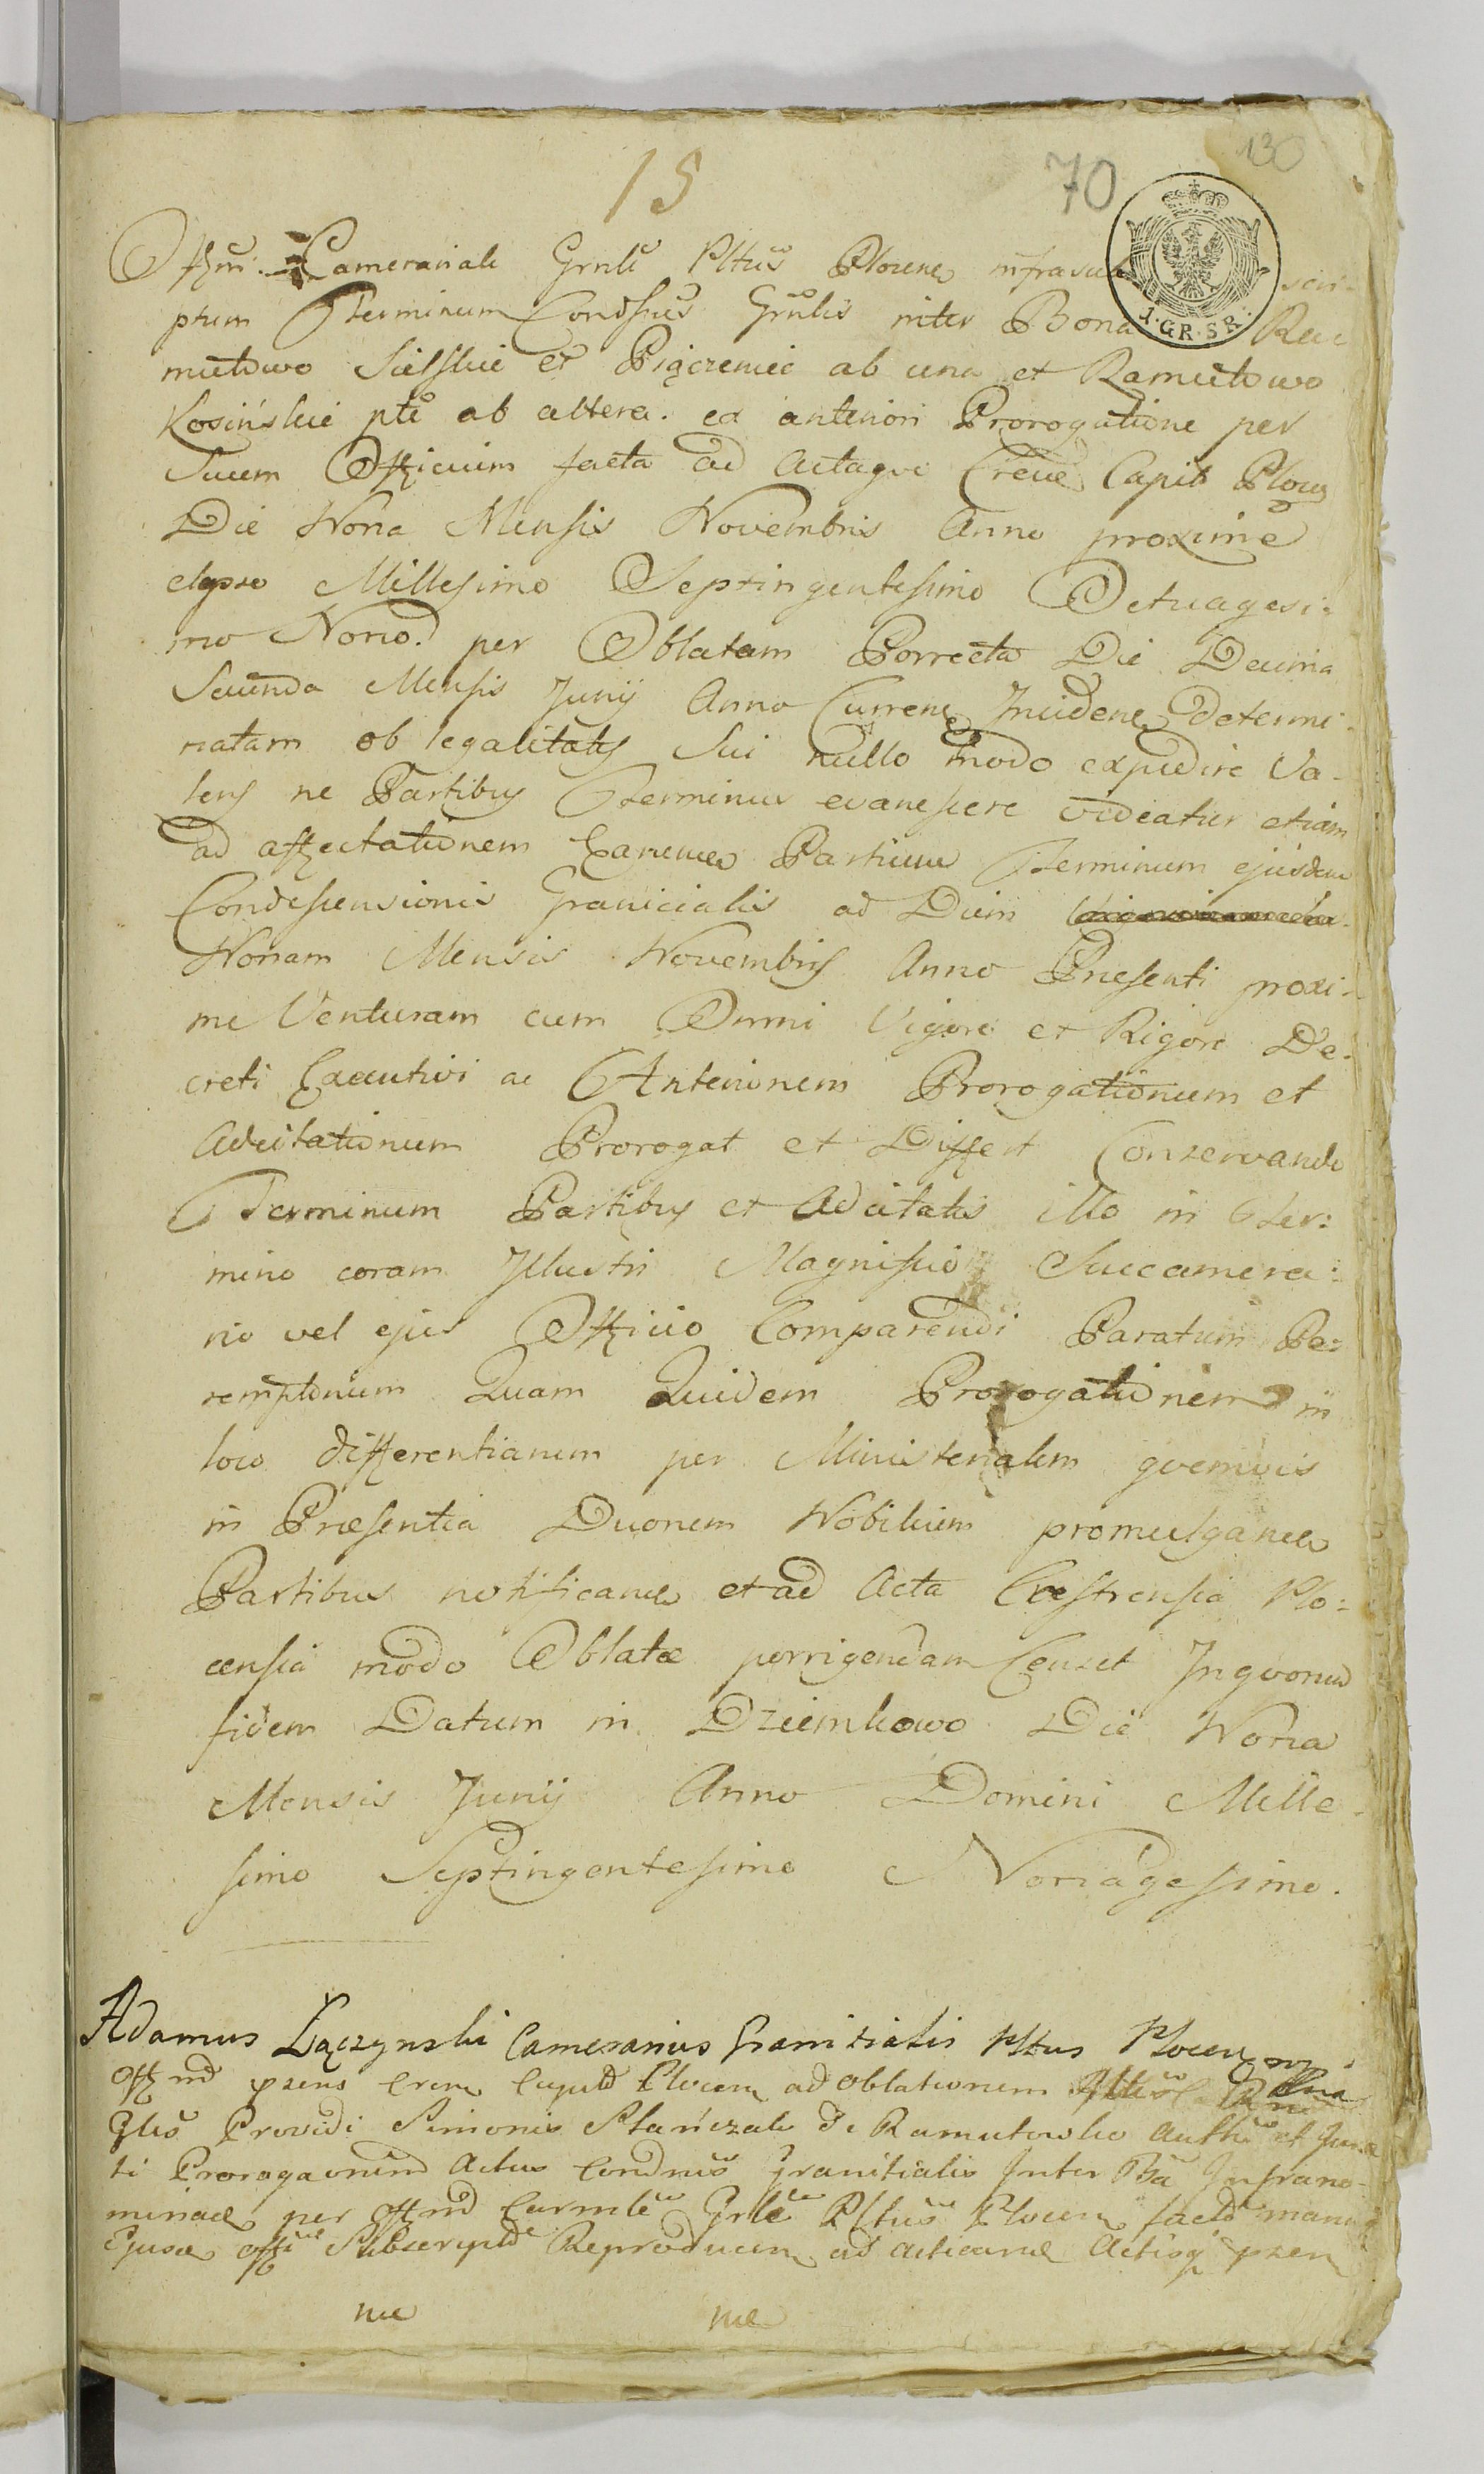 130
70
15
Offm Camerariale Grnle Pltus Plocene infrascri-
1. GR. SR.
ptum Terminum Condsnis Grnlis inter Bona Ra-
mutowo Sielskie et Pięczeniec ab una et Ramutowo
Kosińskie pte ab altera. ex anteriori Prorogatione per
Suum Officium facta ad Actaque Crene Capit Ploce
Die Nona Mensis Novembris Anno proxime
elapso Millesimo Septingentesimo Octuagesi-
mo Nono. per Oblatam Porrecta Die Decima
Secunda Mensis Junij Anno Currene Incidene determi-
natam ob legalitates Sui nullo modo expedire Va-
lens ne Partibus Terminus evanescere videatur etiam
ad affectationem Earume Partium Terminum ejusdem
Condescensionis Granicialis ad Diem
Nonam Mensis Novembris Anno Presenti proxi-
me Venturam cum Omni Vigore et Rigore De-
creti Executivi ac Anteriorum Prorogationum et
Adcitationum Prorogat et Differt Conservando
Terminum Partibus et Adcitatis illo in Ter-
mino coram Illustri Magnifico Succamera-
rio vel ejus Officio Comparendi Paratum Pe-
remptorium Quam Quidem Prorogationem in
loco differentiarum per Ministerialem quemvis
in Præsentia Duorum Nobilium promulgande
Partibus notificande et ad Acta Castrensia Plo-
censia modo Oblatæ porrigendam Censet In quorum
fidem Datum in Dziemkowo Die Nona
Mensis Junij Anno Domini Mille-
simo Septingentesimo Nonagesimo.
Adamus Łączynski Camerarius Granitialis Pltus Plocen mp
Off nd psens Crene Capitd Plocen ad oblationem
Glis Providi Simonis Stańczak de Ramutowko Authi et Junc
ti Prorogaonem Actus Condsnis Granitialis Inter Ba Infrano-
minae per Offm Camrle Grle Pltus Plocen facta manu
Ejusd offi Subscripte Reproducen ad acticane Actisq psen
me me